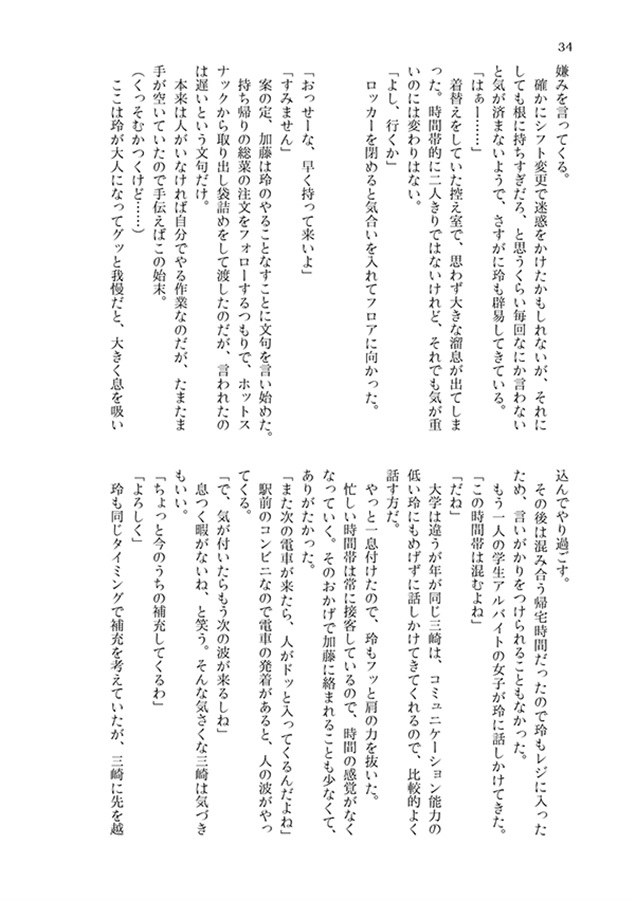 34
嫌みを言ってくる。
　確かにシフト変更で迷惑をかけたかもしれないが、それに
しても根に持ちすぎだろ、と思うくらい毎回なにか言わない
と気が済まないようで、さすがに玲も辟易してきている。
「はぁー……」
　着替えをしていた控え室で、思わず大きな溜息が出てしま
った。時間帯的に二人きりではないけれど、それでも気が重
いのには変わりはない。
「よし、行くか」
　ロッカーを閉めると気合いを入れてフロアに向かった。
「おっせーな、早く持って来いよ」
「すみません」
　案の定、加藤は玲のやることなすことに文句を言い始めた。
　持ち帰りの総菜の注文をフォローするつもりで、ホットス
ナックから取り出し袋詰めをして渡したのだが、言われたの
は遅いという文句だけ。
　本来は人がいなければ自分でやる作業なのだが、たまたま
手が空いていたので手伝えばこの始末。
（くっそむかつくけど……）
　ここは玲が大人になってグッと我慢だと、大きく息を吸い
込んでやり過ごす。
　その後は混み合う帰宅時間だったので玲もレジに入った
ため、言いがかりをつけられることもなかった。
　もう一人の学生アルバイトの女子が玲に話しかけてきた。
「この時間帯は混むよね」
「だね」
　大学は違うが年が同じ三崎は、コミュニケーション能力の
低い玲にもめげずに話しかけてきてくれるので、比較的よく
話す方だ。
　やっと一息付けたので、玲もフッと肩の力を抜いた。
　忙しい時間帯は常に接客しているので、時間の感覚がなく
なっていく。そのおかげで加藤に絡まれることも少なくて、
ありがたかった。
「また次の電車が来たら、人がドッと入ってくるんだよね」
　駅前のコンビニなので電車の発着があると、人の波がやっ
てくる。
「で、気が付いたらもう次の波が来るしね」
　息つく暇がないね、と笑う。そんな気さくな三崎は気づき
もいい。
「ちょっと今のうちの補充してくるわ」
「よろしく」
　玲も同じタイミングで補充を考えていたが、三崎に先を越